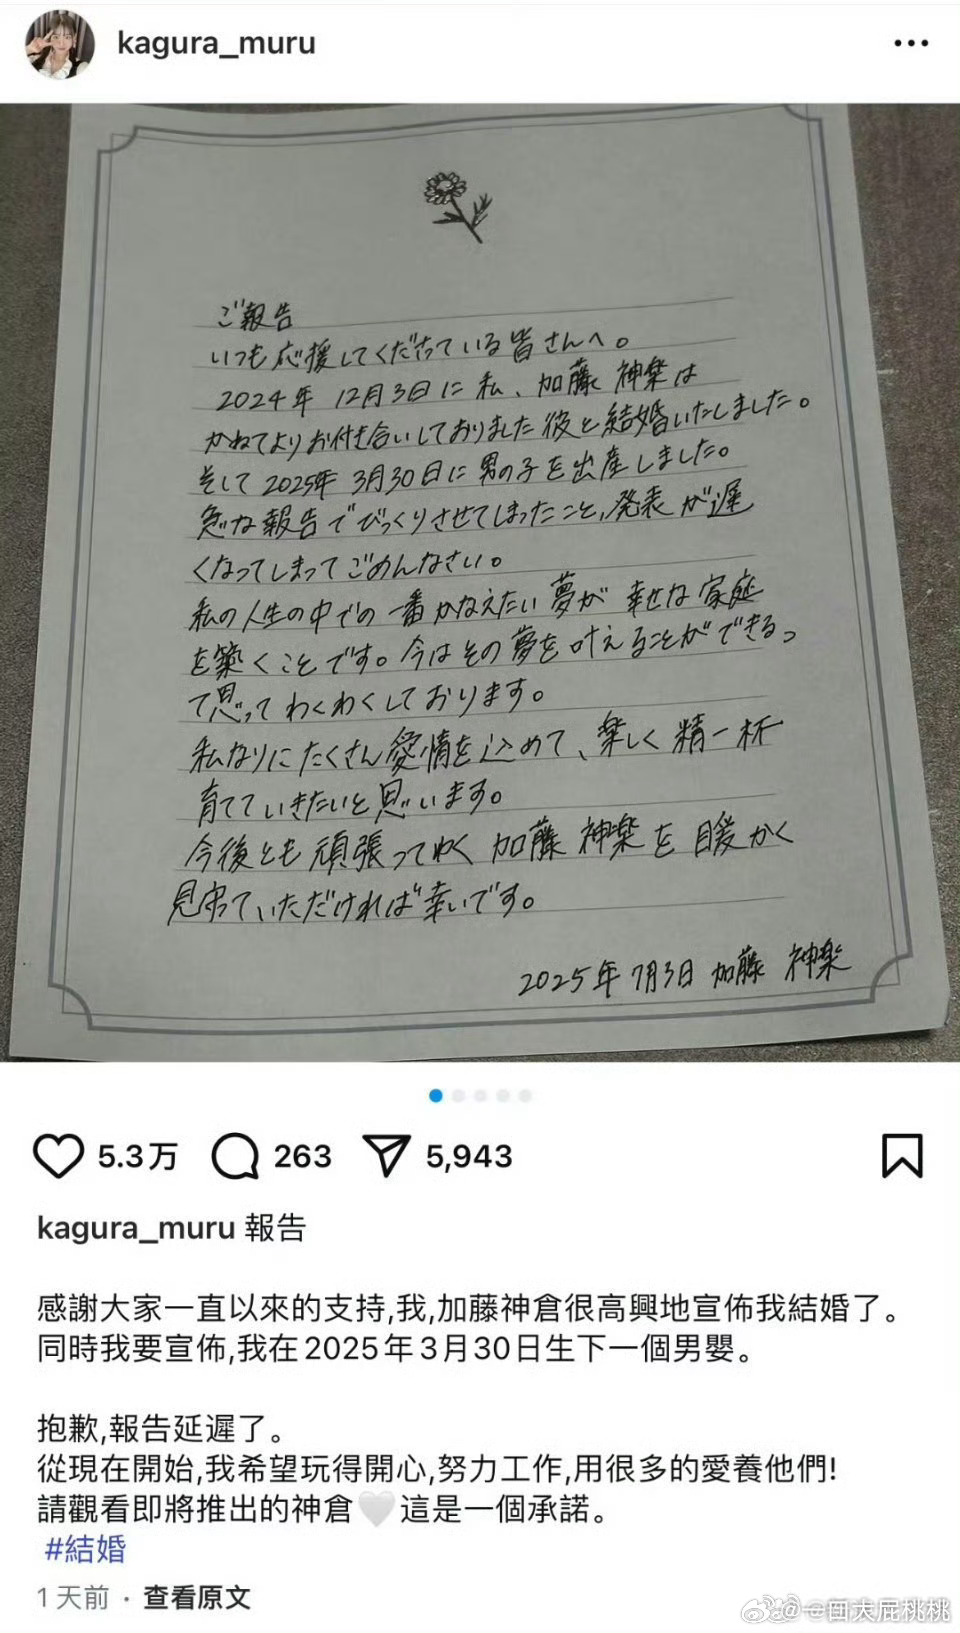 kagura_muru
ご報告
いつも応援してくださっている皆さんへ。
2024年 12月3日に私、加藤 神楽は
かねてよりお付き合いしておりました彼と結婚いたしました。
そして2025年 3月30日に男の子を出産しました。
急な報告でびっくりさせてしまったこと、発表が遅
くなってしまってごめんなさい。
私の人生の中での一番かなえたい夢が 幸せな家庭
を築くことです。今はその夢を叶えることができるっ
て思ってわくわくしております。
私なりにたくさん愛情を込めて、楽しく精一杯
育てていきたいと思います。
今後とも頑張ってゆく 加藤 神楽を 暖かく
見守っていただければ幸いです。
2025年 7月3日 加藤 神楽
5.3万 263 5,943
kagura_muru 報告
感謝大家一直以來的支持,我,加藤神倉很高興地宣佈我結婚了。
同時我要宣佈,我在2025年3月30日生下一個男嬰。
抱歉,報告延遲了。
從現在開始,我希望玩得開心,努力工作,用很多的愛養他們!
請觀看即將推出的神倉🤍這是一個承諾。
#結婚
1 天前 · 查看原文